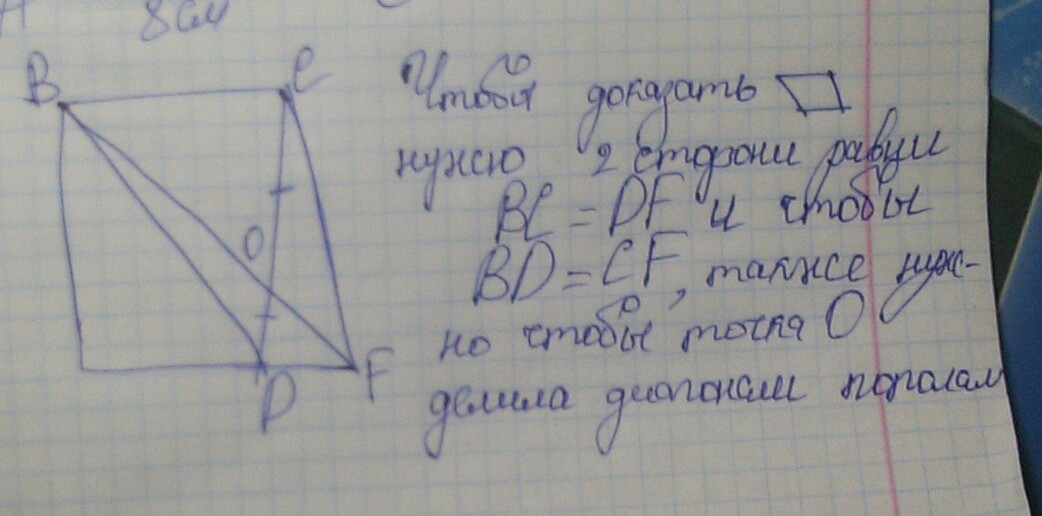 8см
B
C
O
D
F
Чтобы доказать
нужно 2 стороны равны
BC = DF и чтобы
BD = CF, также нуж-
но чтобы точка O
делила диагонали пополам